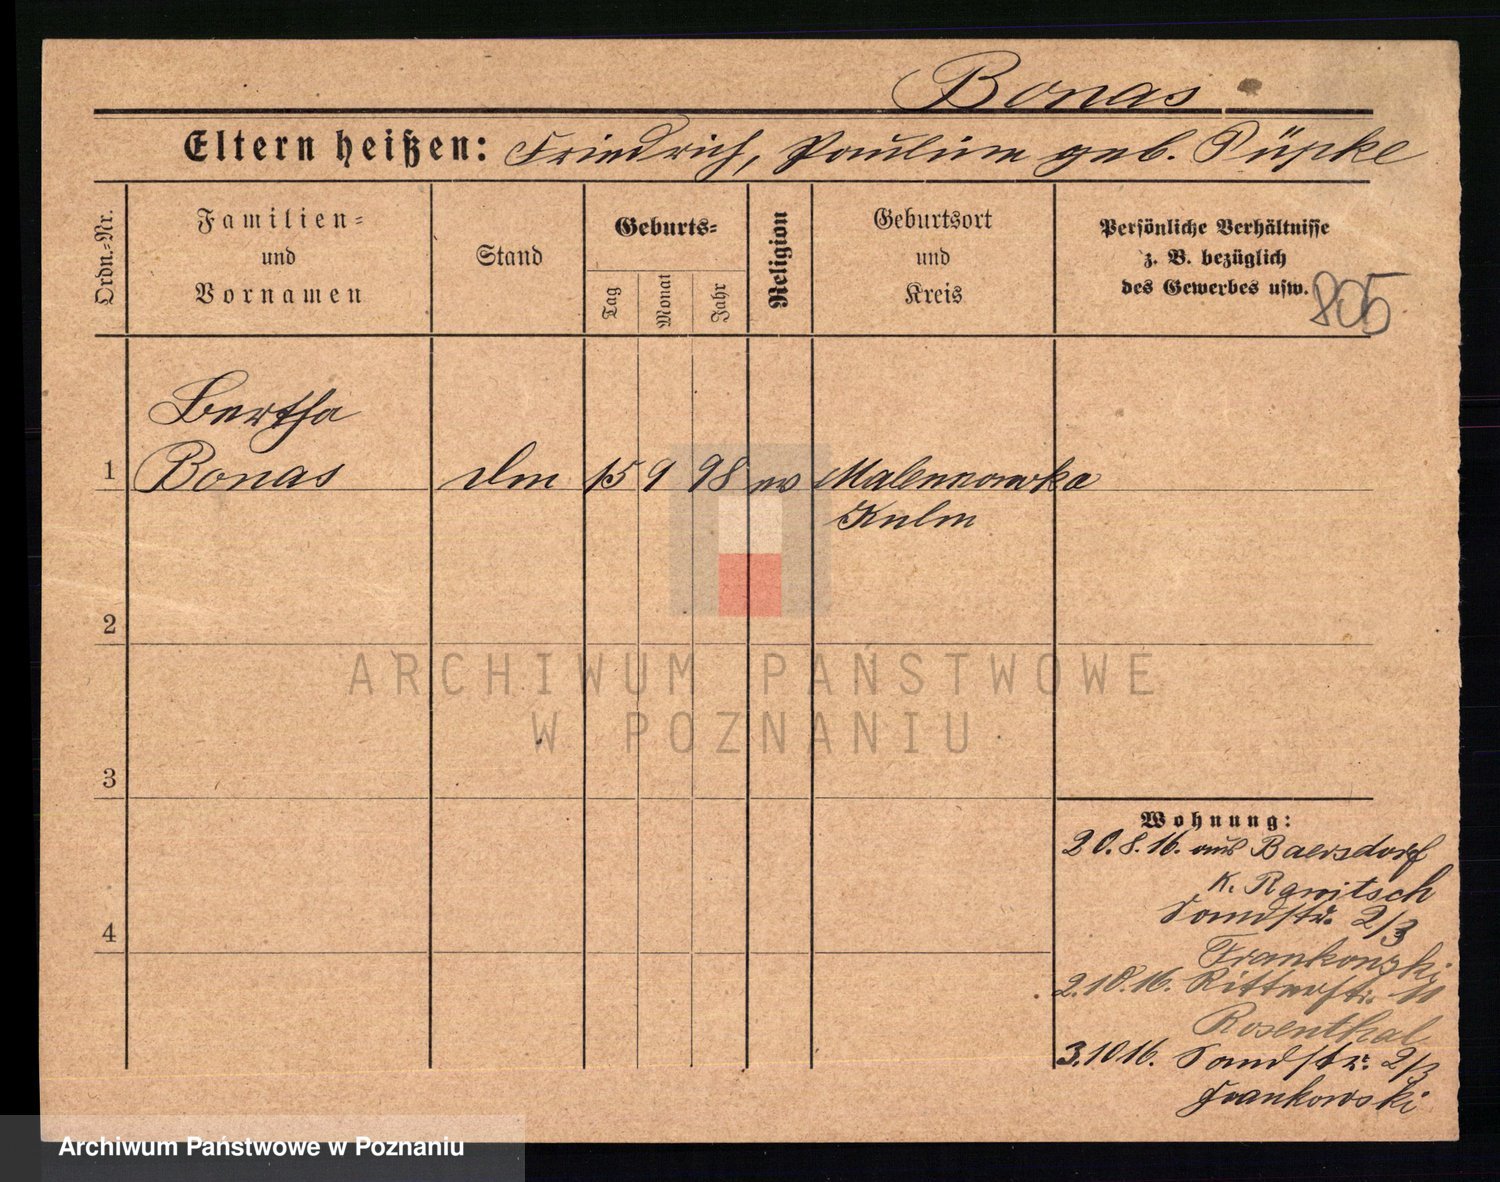 Bonas
Eltern heißen: Friedrich, Pauline geb. Püpke
Ordn.=Nr.
Familien=
und
Vornamen
Stand
Geburts=
Tag
Monat
Jahr
Religion
Geburtsort
und
Kreis
Persönliche Verhältnisse
z. B. bezüglich
des Gewerbes usw.
805
Bertha
1 Bonas 15 9 98 ev
Kulm
2
3
4
Wohnung:
20.8.16. aus Baersdorf
K. Rawitsch
Sandstr. 2/3
Frankowski
2.10.16. Ritterstr. 11
Rosenthal
3.10.16. Sandstr. 2/3
Frankowski
ARCHIWUM PAŃSTWOWE
W POZNANIU
Archiwum Państwowe w Poznaniu